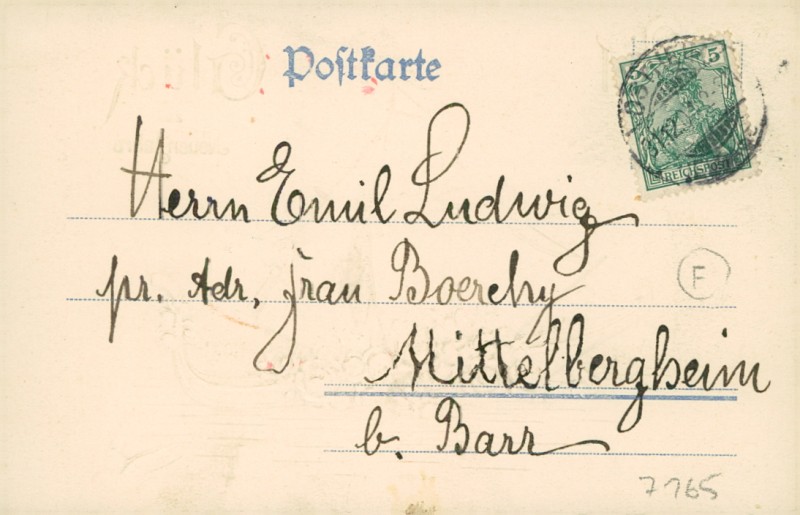 Postkarte
5
Herrn Emil Ludwig
pr. Adr. Frau Boerchy
F
Mittelbergheim
b. Barr
7765